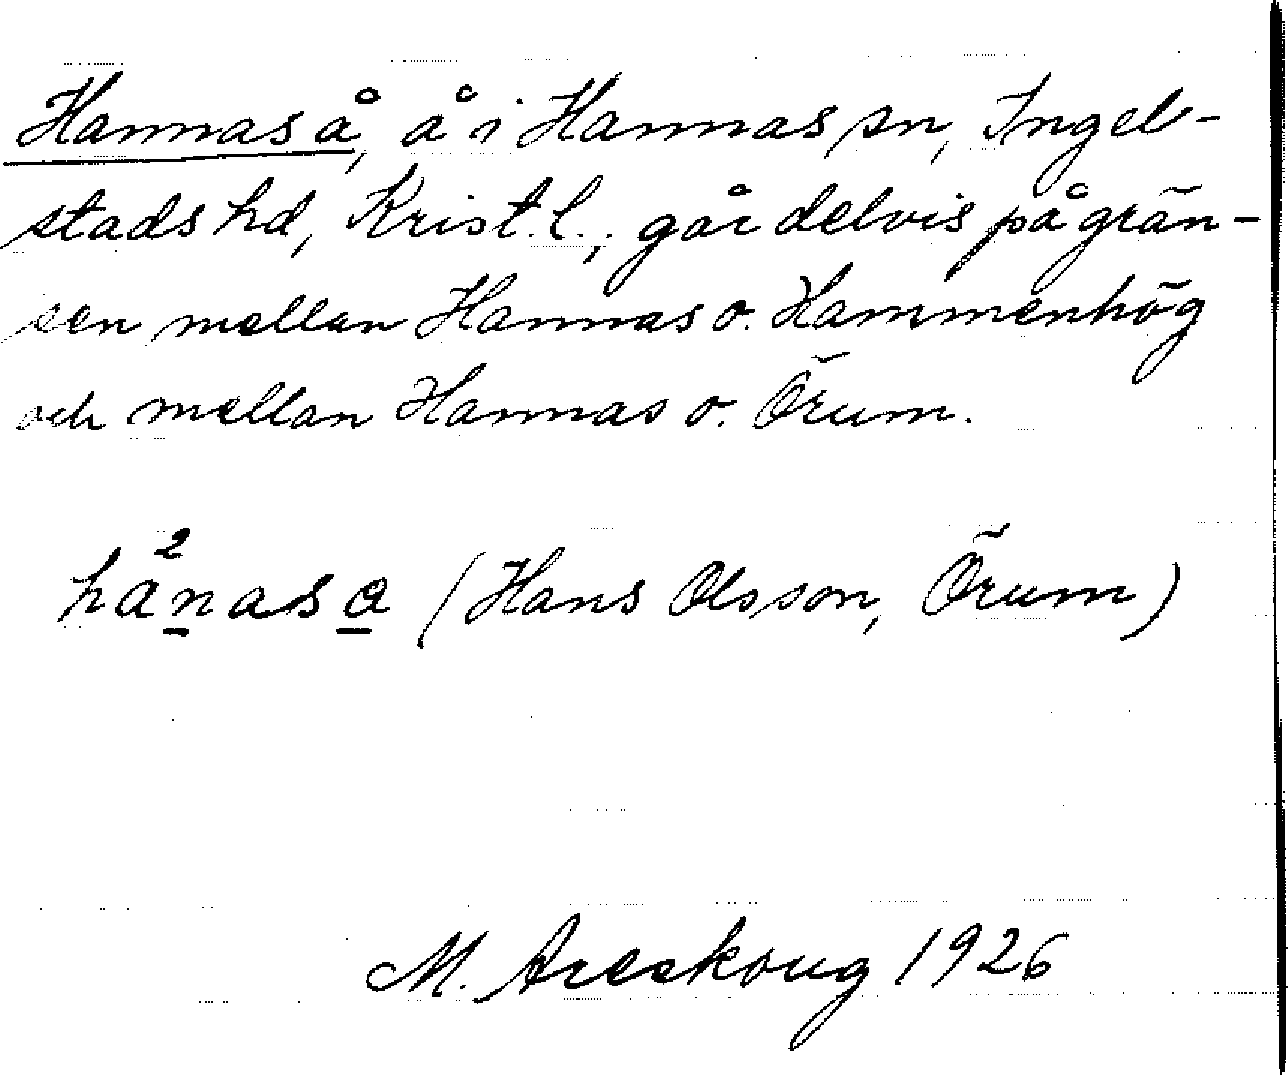 Hannas å, å i Hannas sn, Ingel-
stads hd, Krist. l., går delvis på grän-
sen mellan Hannas o. Hammenhög
och mellan Hannas o. Örum.
(Hans Olsson, Örum)
M. Areskoug 1926